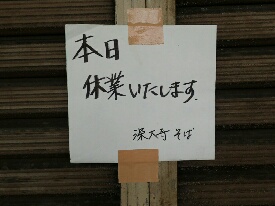 本日
休業いたします.
深大寺 そば